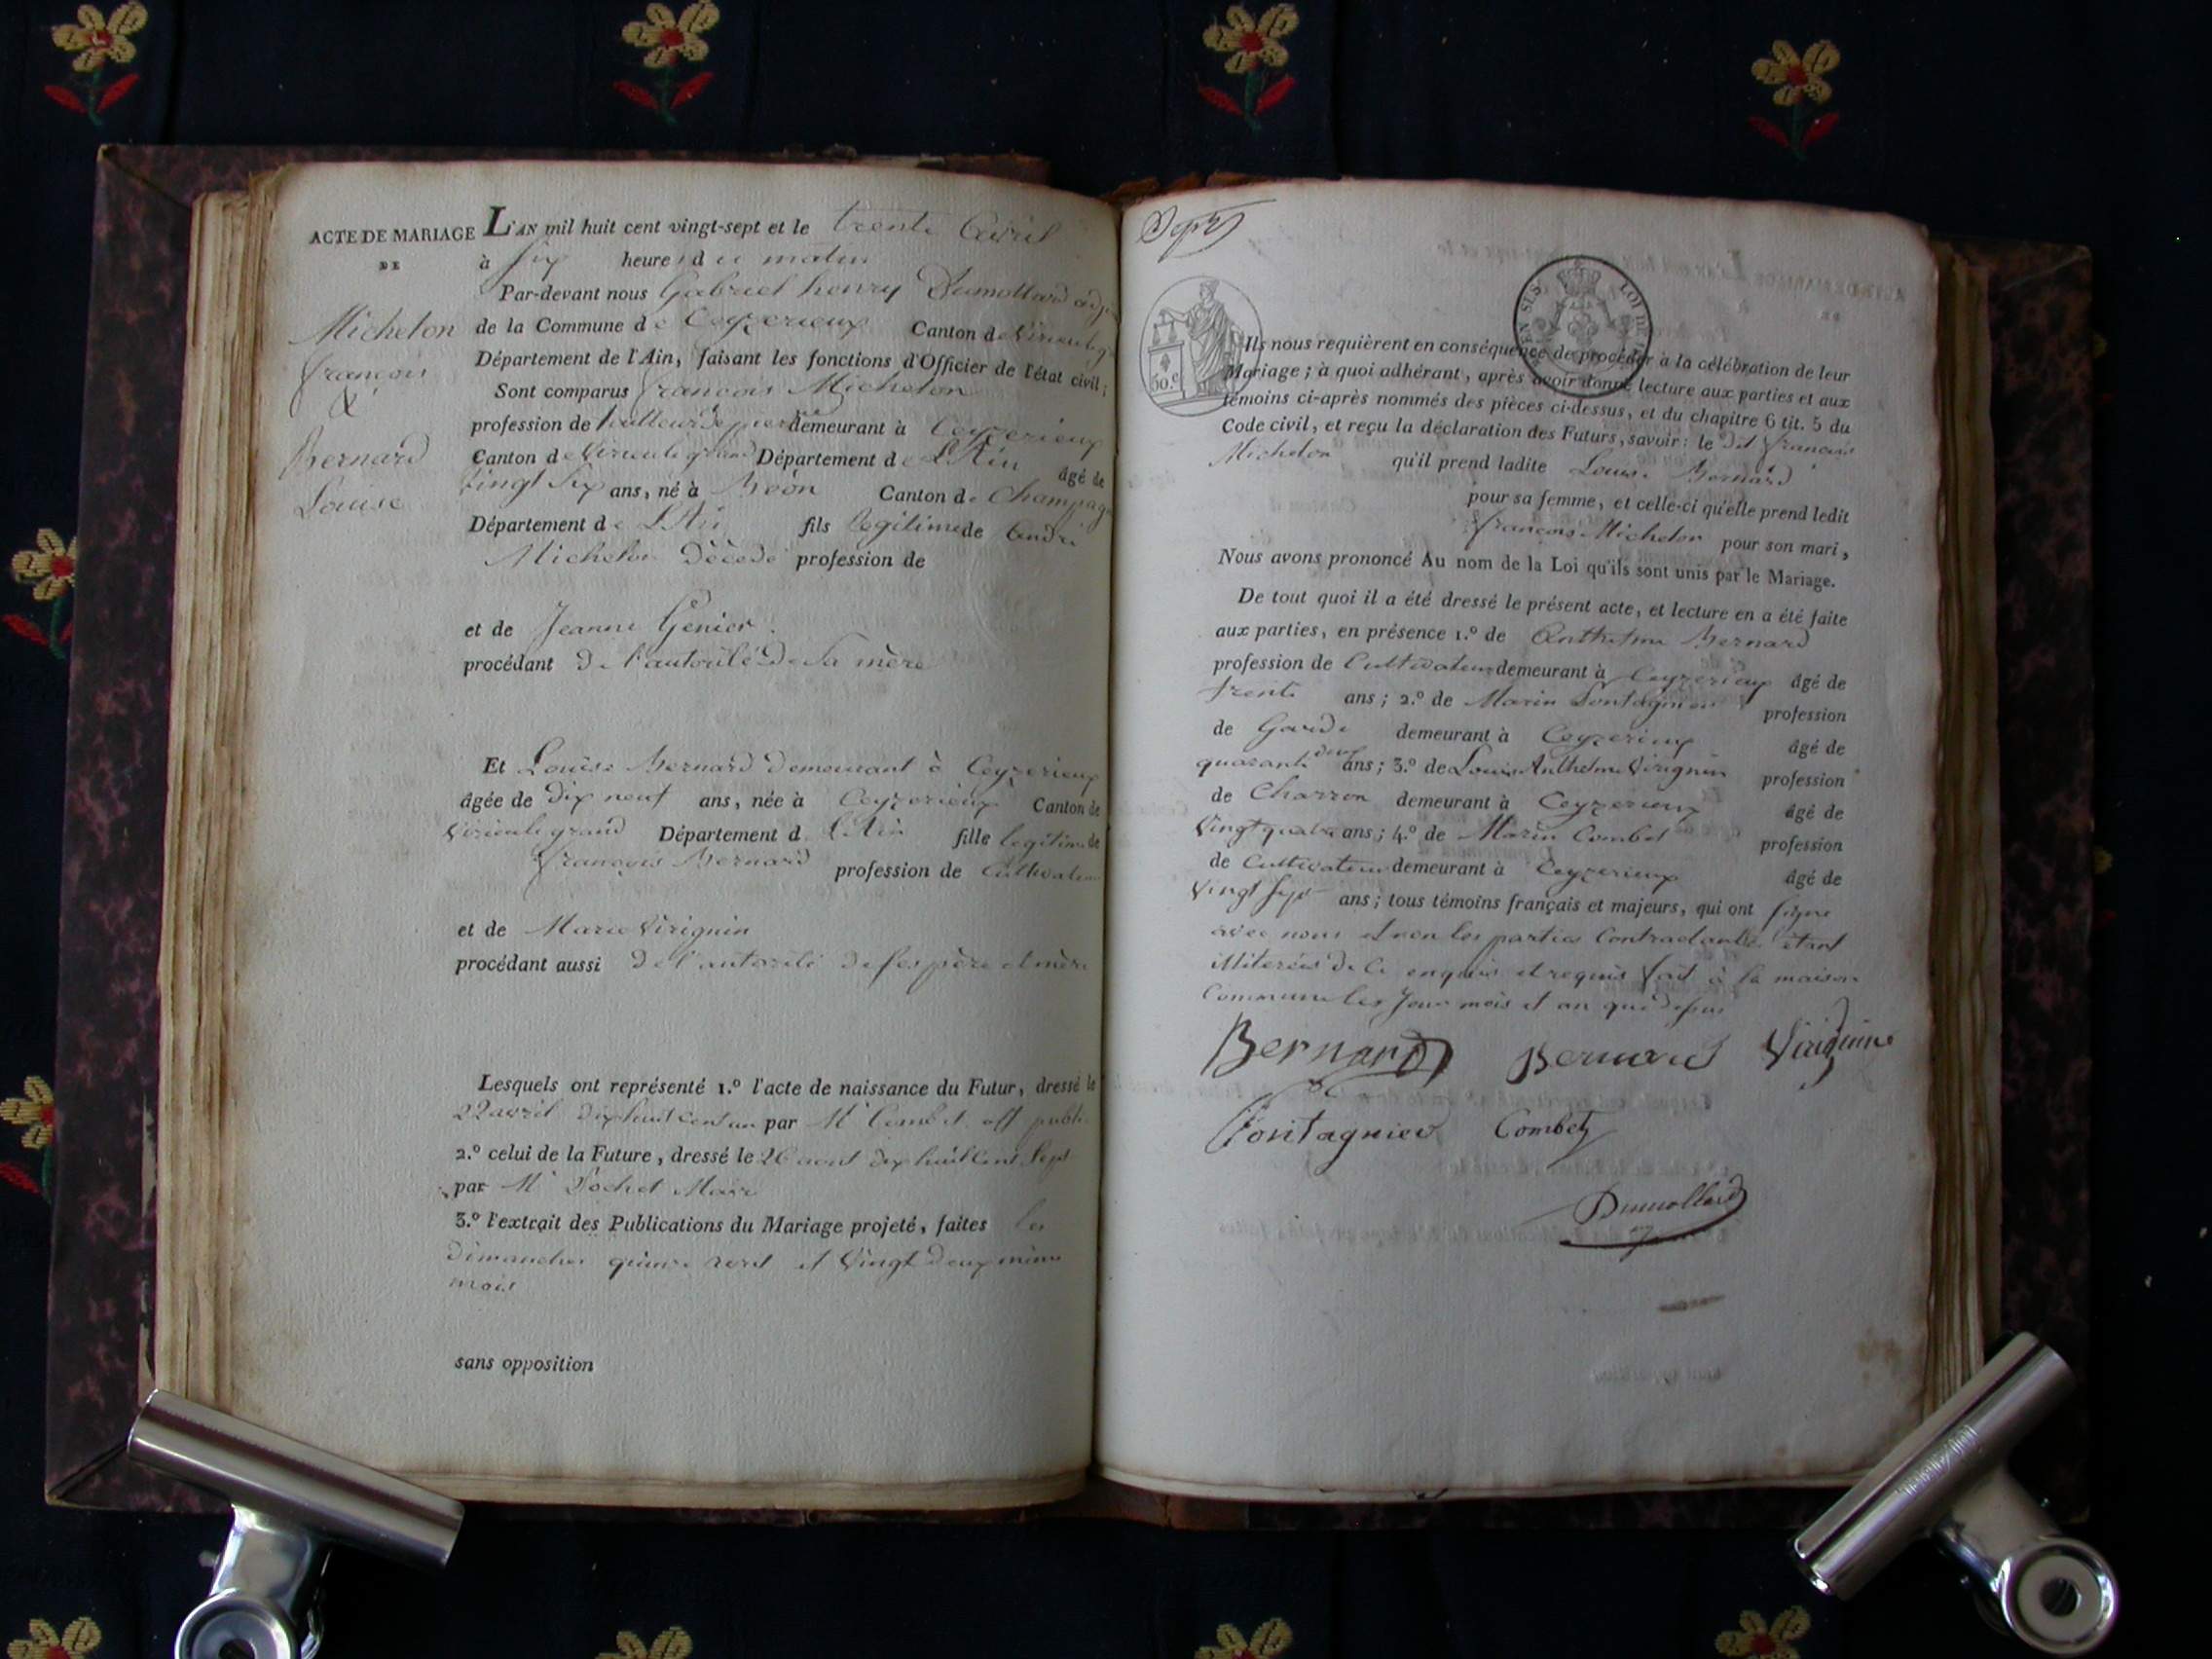 ACTE DE MARIAGE
DE
Michelon
françois
&
Bernard
Louise
L'AN mil huit cent vingt-sept et le trente avril
à six heures du matin
Par-devant nous Gabriel henry Dumollard adj
de la Commune de Ceyzerieux Canton de Virieu le g
Département de l'Ain, faisant les fonctions d'Officier de l'état civil;
Sont comparus françois Michelon
profession de tailleur de pierre demeurant à Ceyzerieux
Canton de Virieu le grand Département de L'Ain âgé de
vingt six ans, né à Béon Canton de Champag
Département de L'Ain fils légitime de andré
Michelon décédé profession de
et de Jeanne Génier
procédant de l'autorité de sa mère
Et Louise Bernard demeurant à Ceyzerieux
âgée de dix neuf ans, née à Ceyzerieux Canton de
Virieu le grand Département de L'Ain fille légitime de
françois Bernard profession de Cultivateur
et de Marie Virignin
procédant aussi de l'autorité de ses père et mère
Lesquels ont représenté 1.º l'acte de naissance du Futur, dressé le
22 avril dix huit cent un par Mr Combet off public
2.º celui de la Future, dressé le 26 aout dix huit cent sept
par Mr Pochet Maire
3.º l'extrait des Publications du Mariage projeté, faites les
dimanches quinze avril et vingt deux même
mois
sans opposition
Sept
50.c
Ils nous requièrent en conséquence de procéder à la célébration de leur
Mariage; à quoi adhérant, après avoir donné lecture aux parties et aux
témoins ci-après nommés des pièces ci-dessus, et du chapitre 6 tit. 5 du
Code civil, et reçu la déclaration des Futurs, savoir: le dit françois
Michelon qu'il prend ladite Louise Bernard
pour sa femme, et celle-ci qu'elle prend ledit
françois Michelon pour son mari,
Nous avons prononcé Au nom de la Loi qu'ils sont unis par le Mariage.
De tout quoi il a été dressé le présent acte, et lecture en a été faite
aux parties, en présence 1.º de Anthelme Bernard
profession de Cultivateur demeurant à Ceyzerieux âgé de
trente ans; 2.º de Marin Fontagnieu profession
de Garde demeurant à Ceyzerieux âgé de
quarante deux ans; 3.º de Louis Anthelme Virignin profession
de Charron demeurant à Ceyzerieux âgé de
Vingt quatre ans; 4.º de Marin Combet profession
de Cultivateur demeurant à Ceyzerieux âgé de
Vingt sept ans; tous témoins français et majeurs, qui ont signé
avec nous et non les parties Contractantes étant
illiterées de ce enquis et requis fait à la maison
Commune les Jour mois et an que dessus
Bernard Bernard Virignin
Fontagnieu Combet
Dumollard